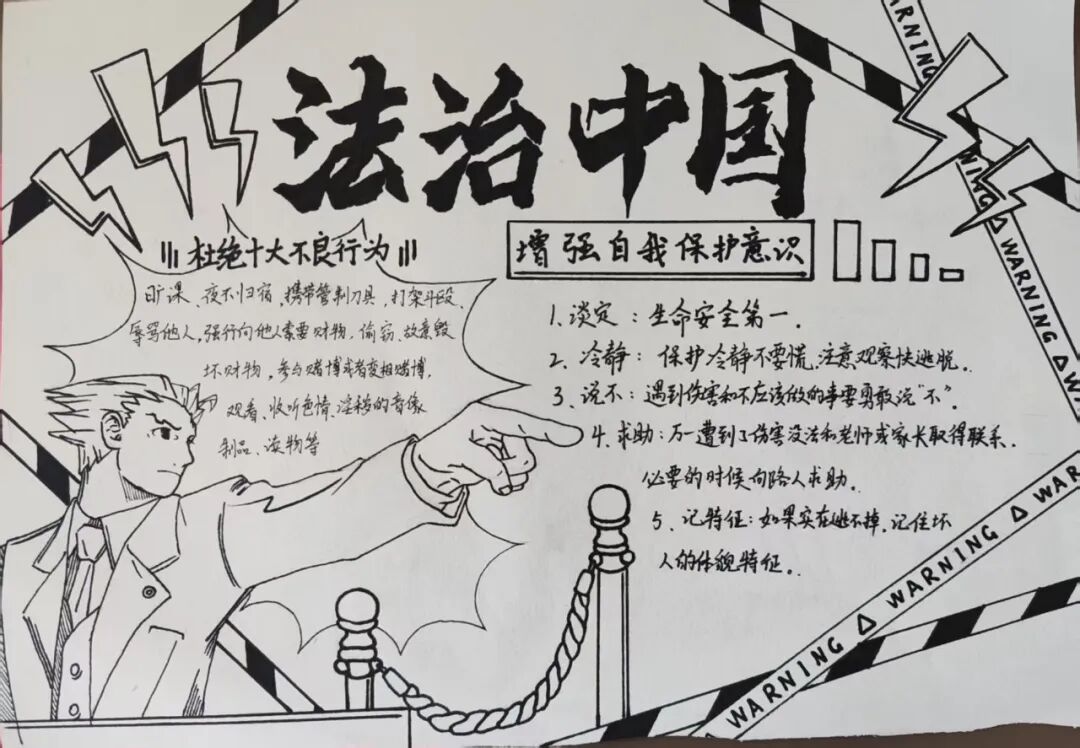 法治中国
杜绝十大不良行为
旷课、夜不归宿,携带管制刀具、打架斗殴、
辱骂他人,强行向他人索要财物,偷窃、故意毁
坏财物,参与赌博或者变相赌博,
观看、收听色情、淫秽的音像
制品、读物等
增强自我保护意识
1.淡定:生命安全第一.
2.冷静:保护冷静不要慌,注意观察快逃脱。
3、说不:遇到伤害和不应该做的事要勇敢说“不”。
4.求助:万一遭到了伤害没法和老师或家长取得联系.
必要的时候向路人求助。
5、记特征:如果实在逃不掉,记住坏
人的体貌特征。
WARNING
WARNING
WARNING
WARNING
WARNING
WARNING
WARNING
WARNING